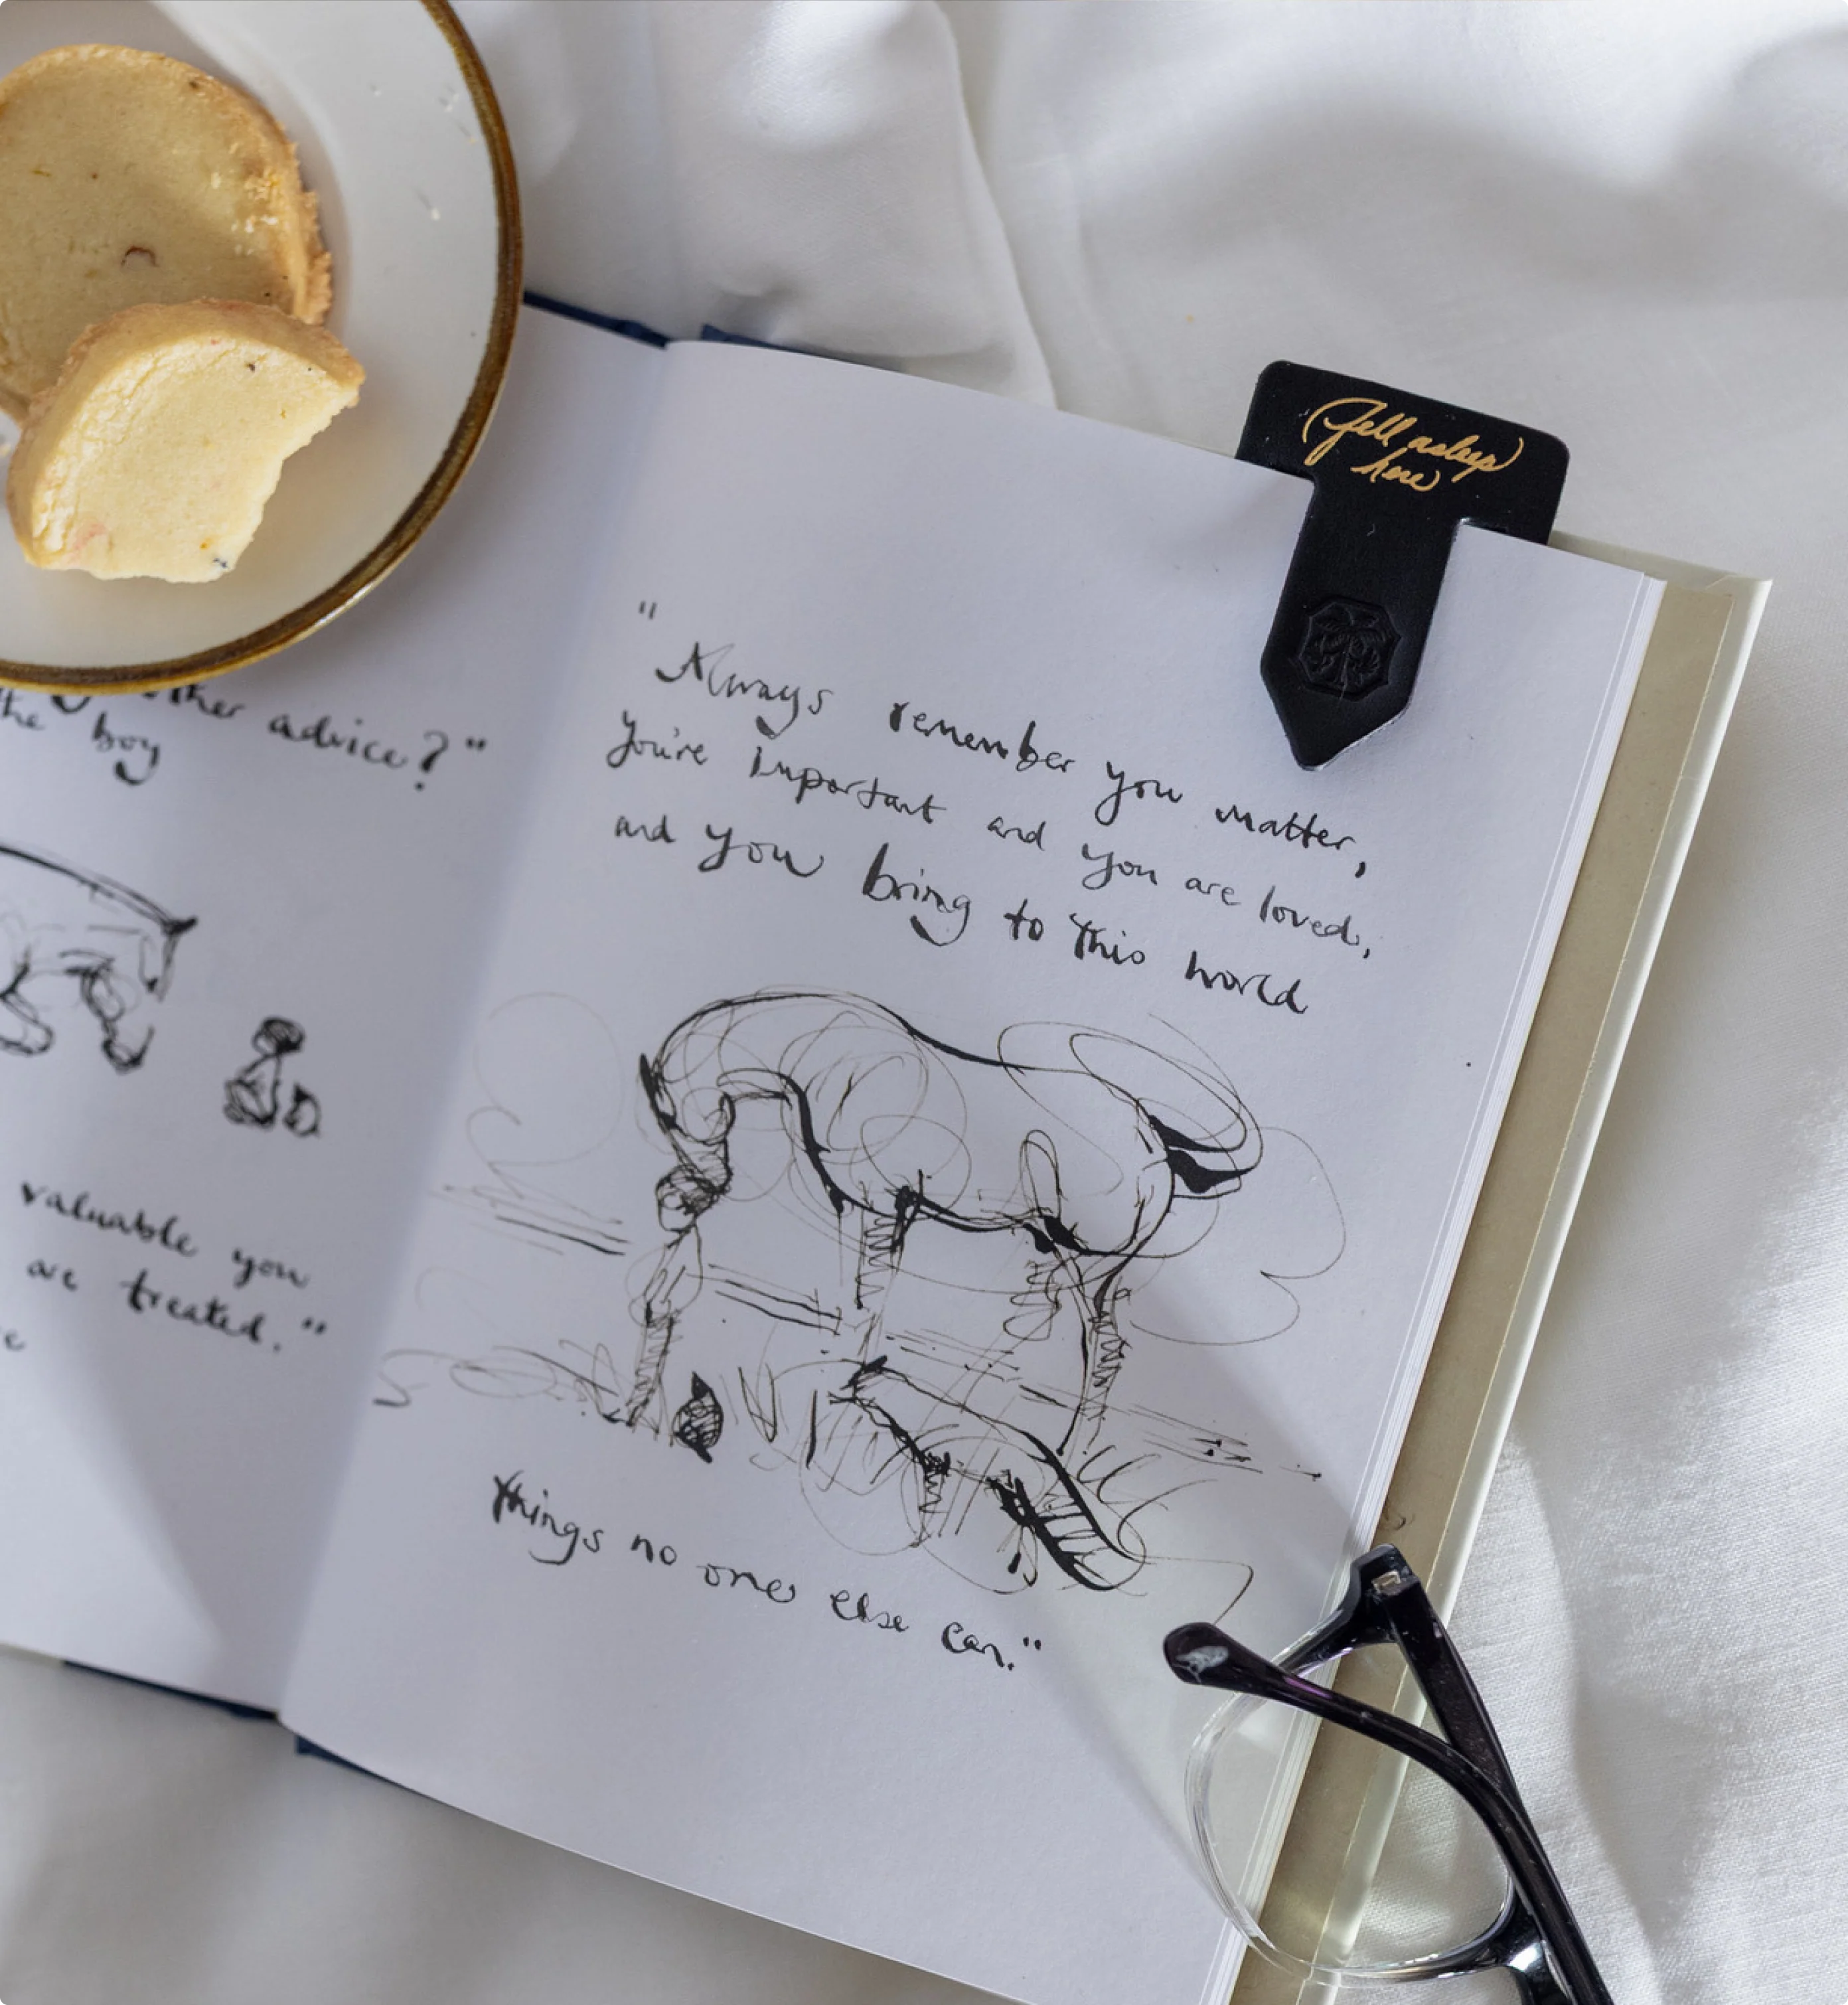 other advice?"
the boy
valuable you
are treated."
"
Always remember you matter,
you're important and you are loved,
and you bring to this world
things no one else can."
Fell asleep
here